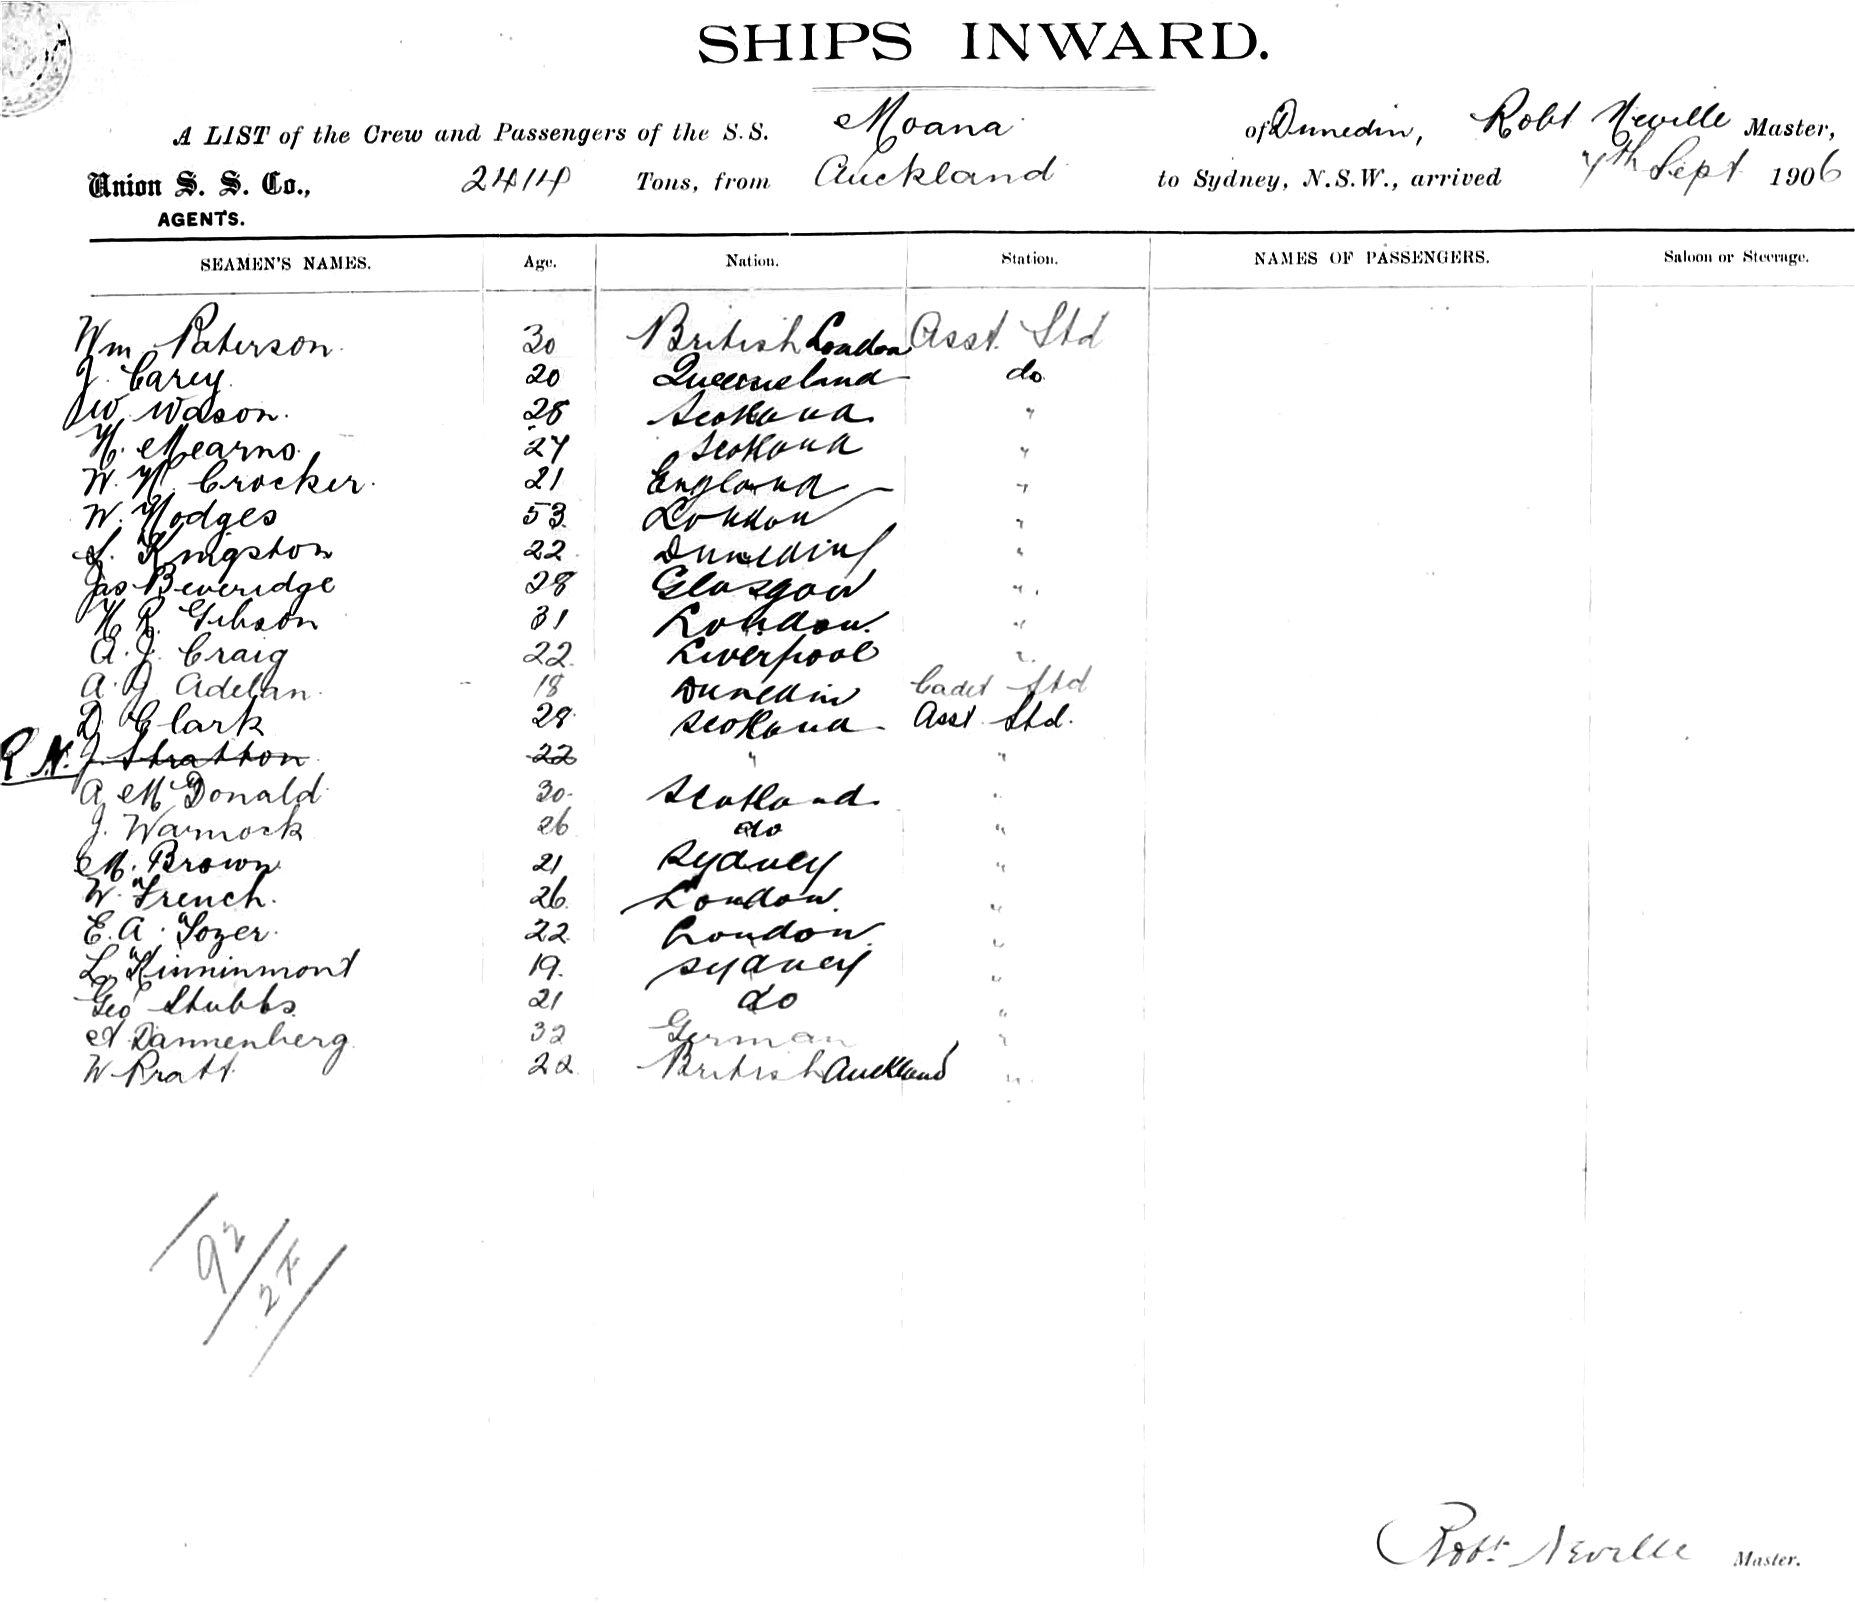 SHIPS INWARD.
A LIST of the Crew and Passengers of the S.S. Moana of Dunedin, Robt Neville Master,
Union S. S. Co., 2414 Tons, from Auckland to Sydney, N.S.W., arrived 7th Sept 1906
AGENTS.
SEAMEN'S NAMES. Age. Nation. Station. NAMES OF PASSENGERS. Saloon or Steerage.
Wm Paterson. 30 British London Asst. Std
J. Carey. 20 Queensland do
W. Wason. 28 Scotland "
H. Mearns. 27 Scotland "
W. H. Crocker. 21 England "
W. Hodges 53 London "
S. Kingston 22 Dunedin "
Jas Beveridge 28 Glasgow "
H R. Gibson 31 London. "
A. J. Craig 22 Liverpool "
A. J Adelan. 18 Dunedin Cadet Std
D. Clark 28 Scotland Asst. Std.
R N. J. Stratton 22 " "
A McDonald 30 Scotland "
J. Warnock 26 do "
M. Brown 21 Sydney "
W. French. 26 London. "
E. A. Tozer. 22 London "
L. Kinninmont 19. Sydney "
Geo Stubbs. 21 do "
A. Dannenberg 32 German "
W Pratt. 22 British Auckland "
92/27
Robt. Neville Master.